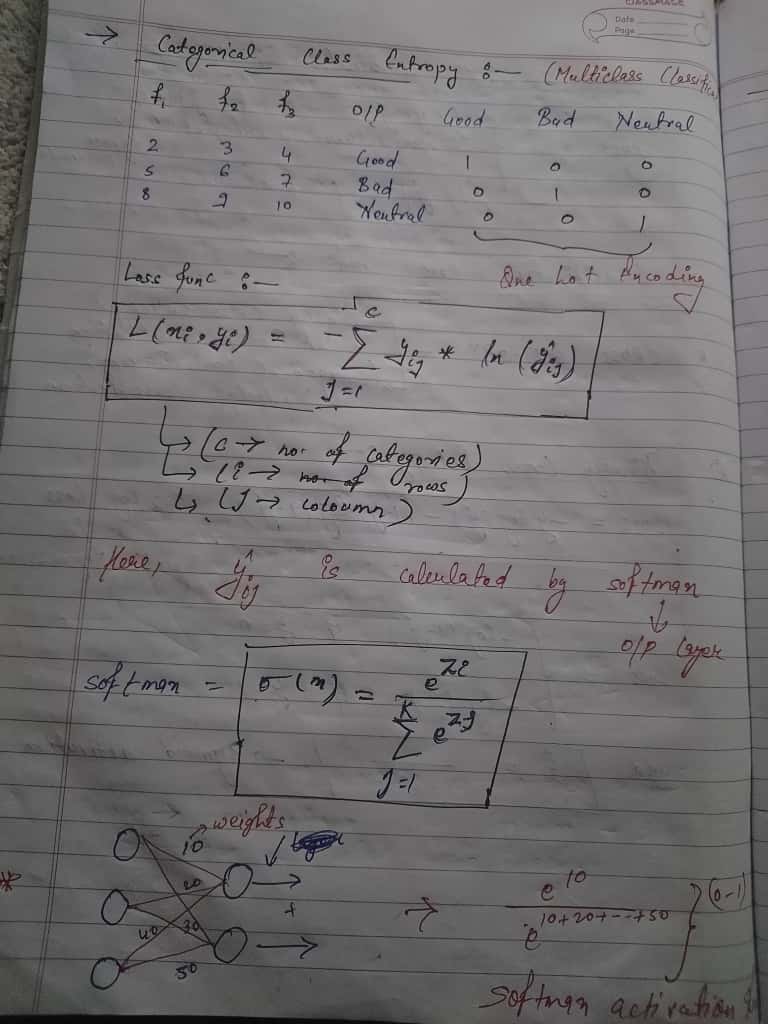 CLASSMATE
Date
Page
→ Categorical Class Entropy :— (Multiclass Classific
f₁ f₂ f₃ O/P Good Bad Neutral
2 3 4 Good 1 0 0
5 6 7 Bad 0 1 0
8 9 10 Neutral 0 0 1
Loss func :— One hot Encoding
L(xi, yi) = - Σ_{J=1}^{C} yij * ln (ŷij)
↳ (C → no. of categories)
↳ (i → rows)
↳ (J → coloumn)
Here, ŷij is calculated by softmax
↓
O/P layer
softmax = σ(x) = e^{Zi} / Σ_{J=1}^{K} e^{ZJ}
→ weights
10
20
+
40 30
50
* → e^{10} / e^{10+20+--+50} } (0-1)
Softmax activation